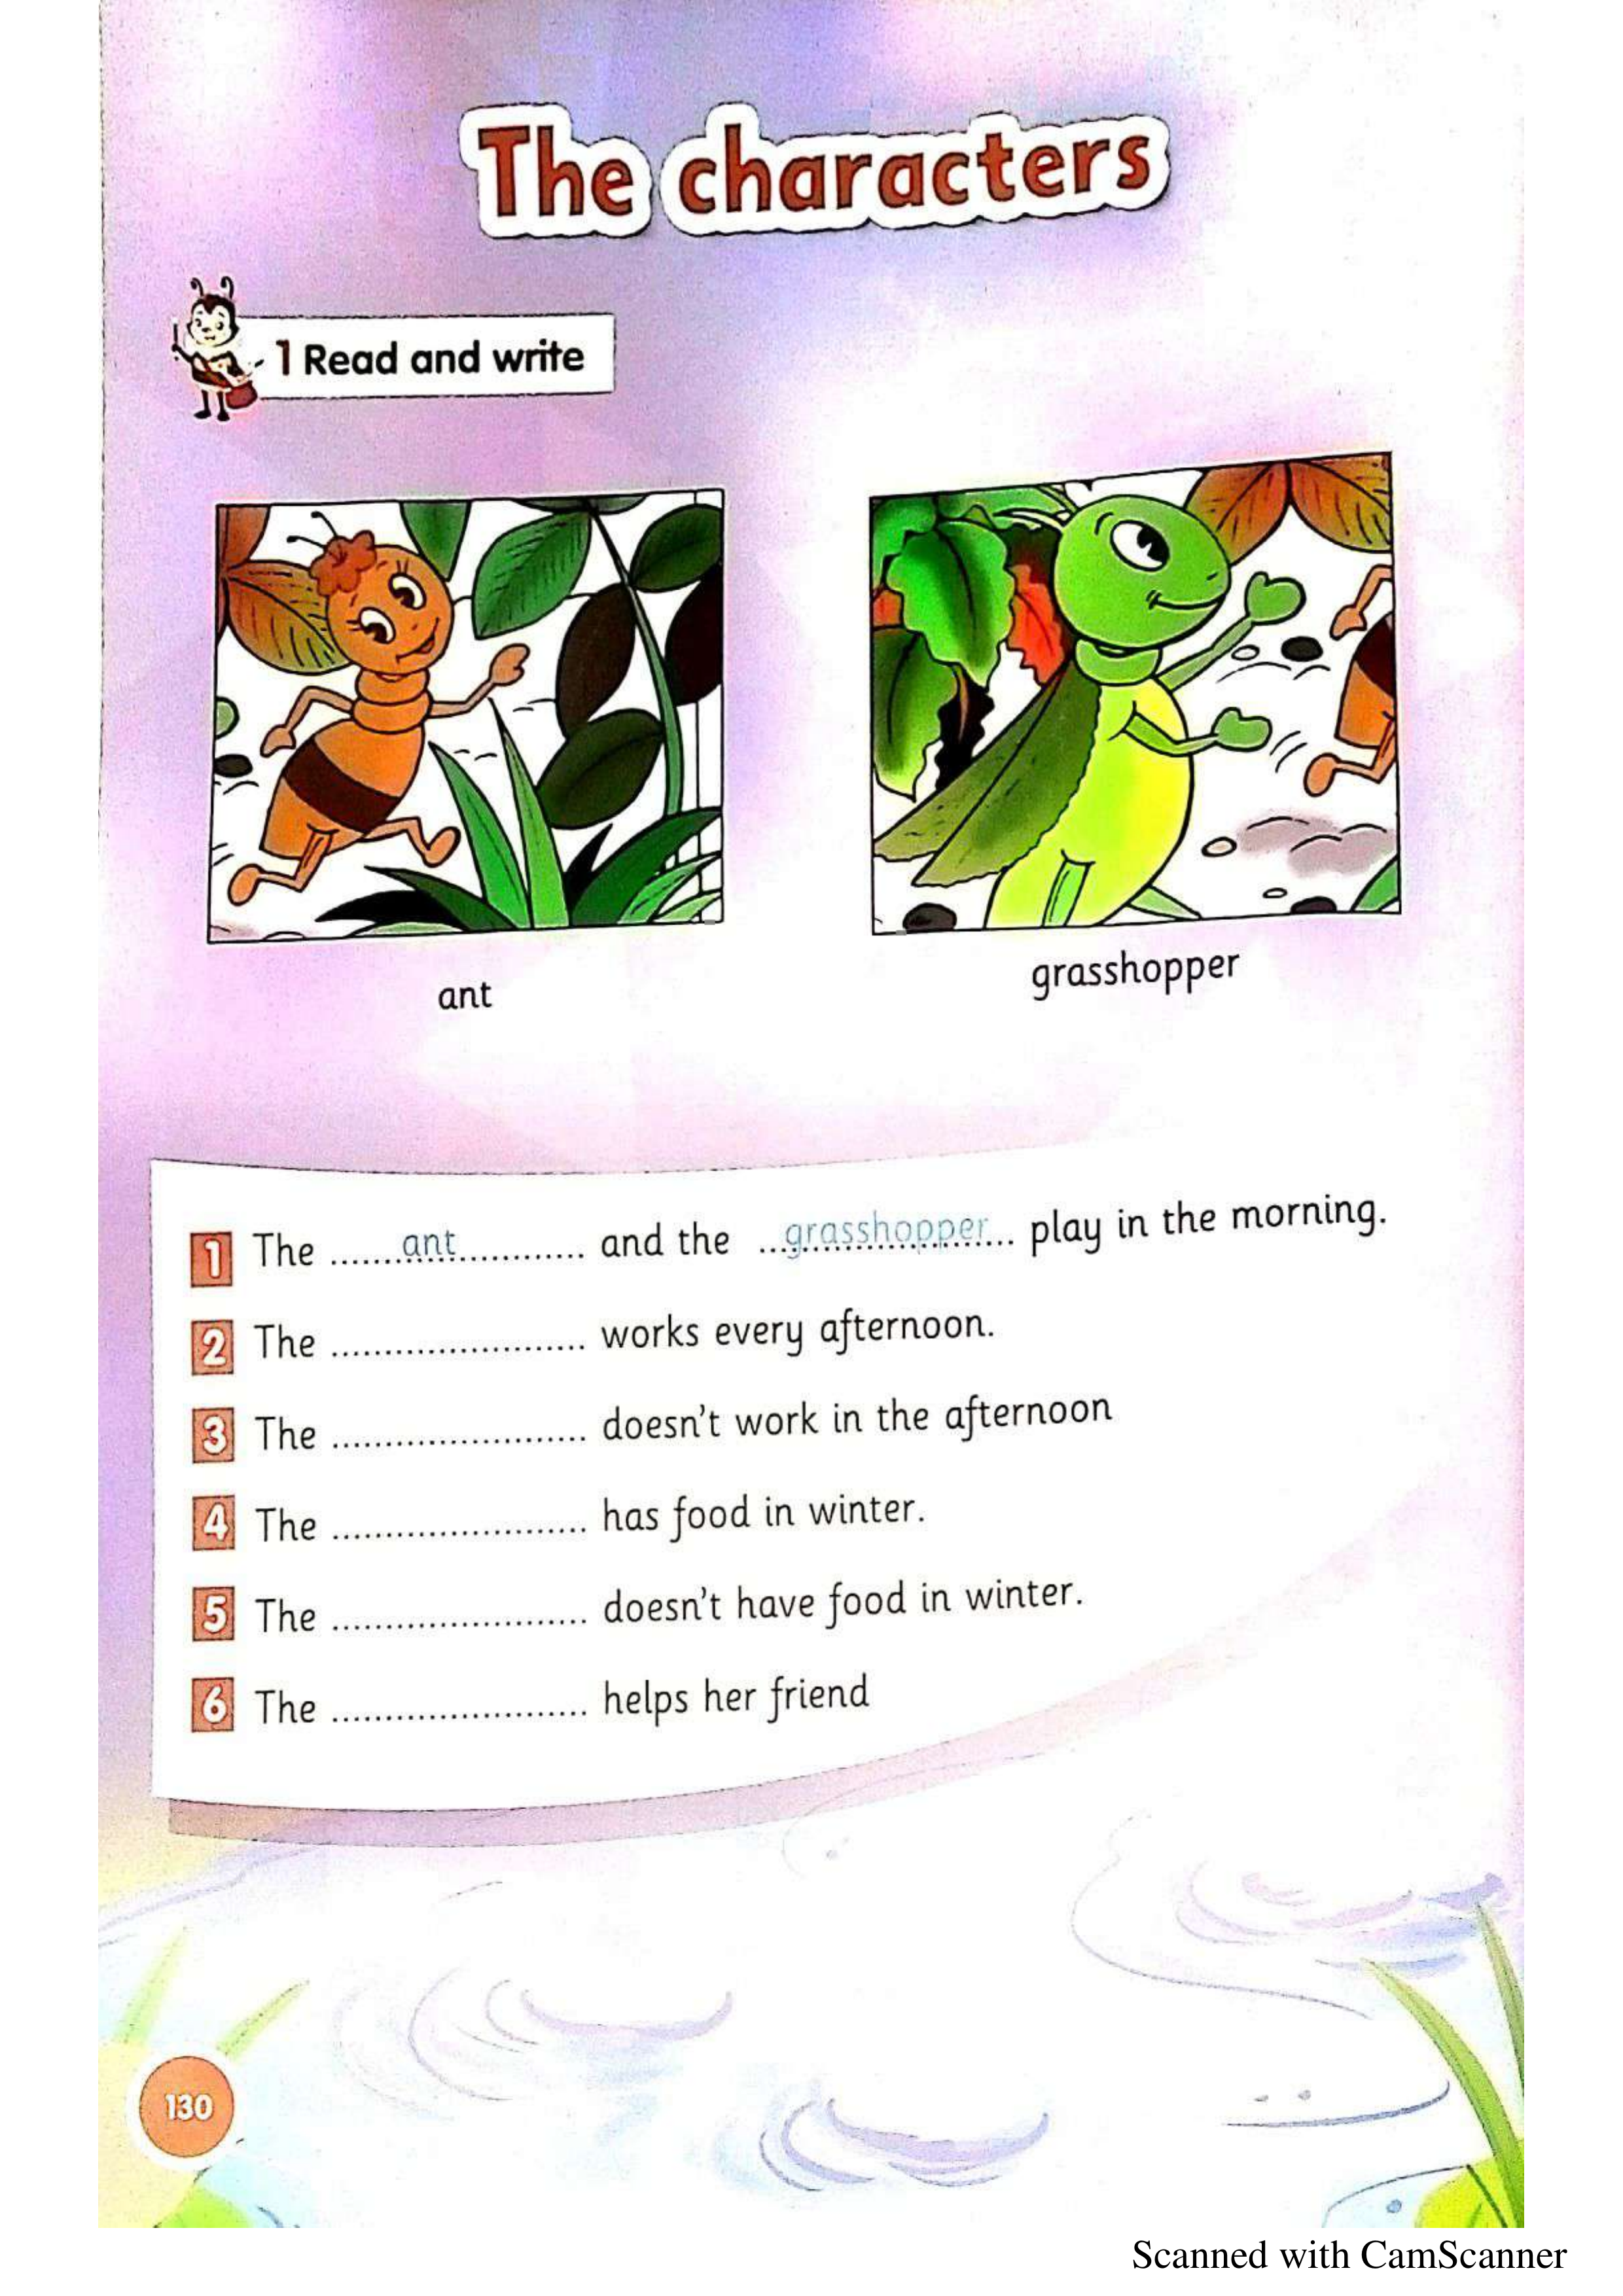 The characters
1 Read and write
ant
grasshopper
1 The ......ant............ and the ...grasshopper... play in the morning.
2 The ........................ works every afternoon.
3 The ........................ doesn't work in the afternoon
4 The ........................ has food in winter.
5 The ........................ doesn't have food in winter.
6 The ........................ helps her friend
130
Scanned with CamScanner